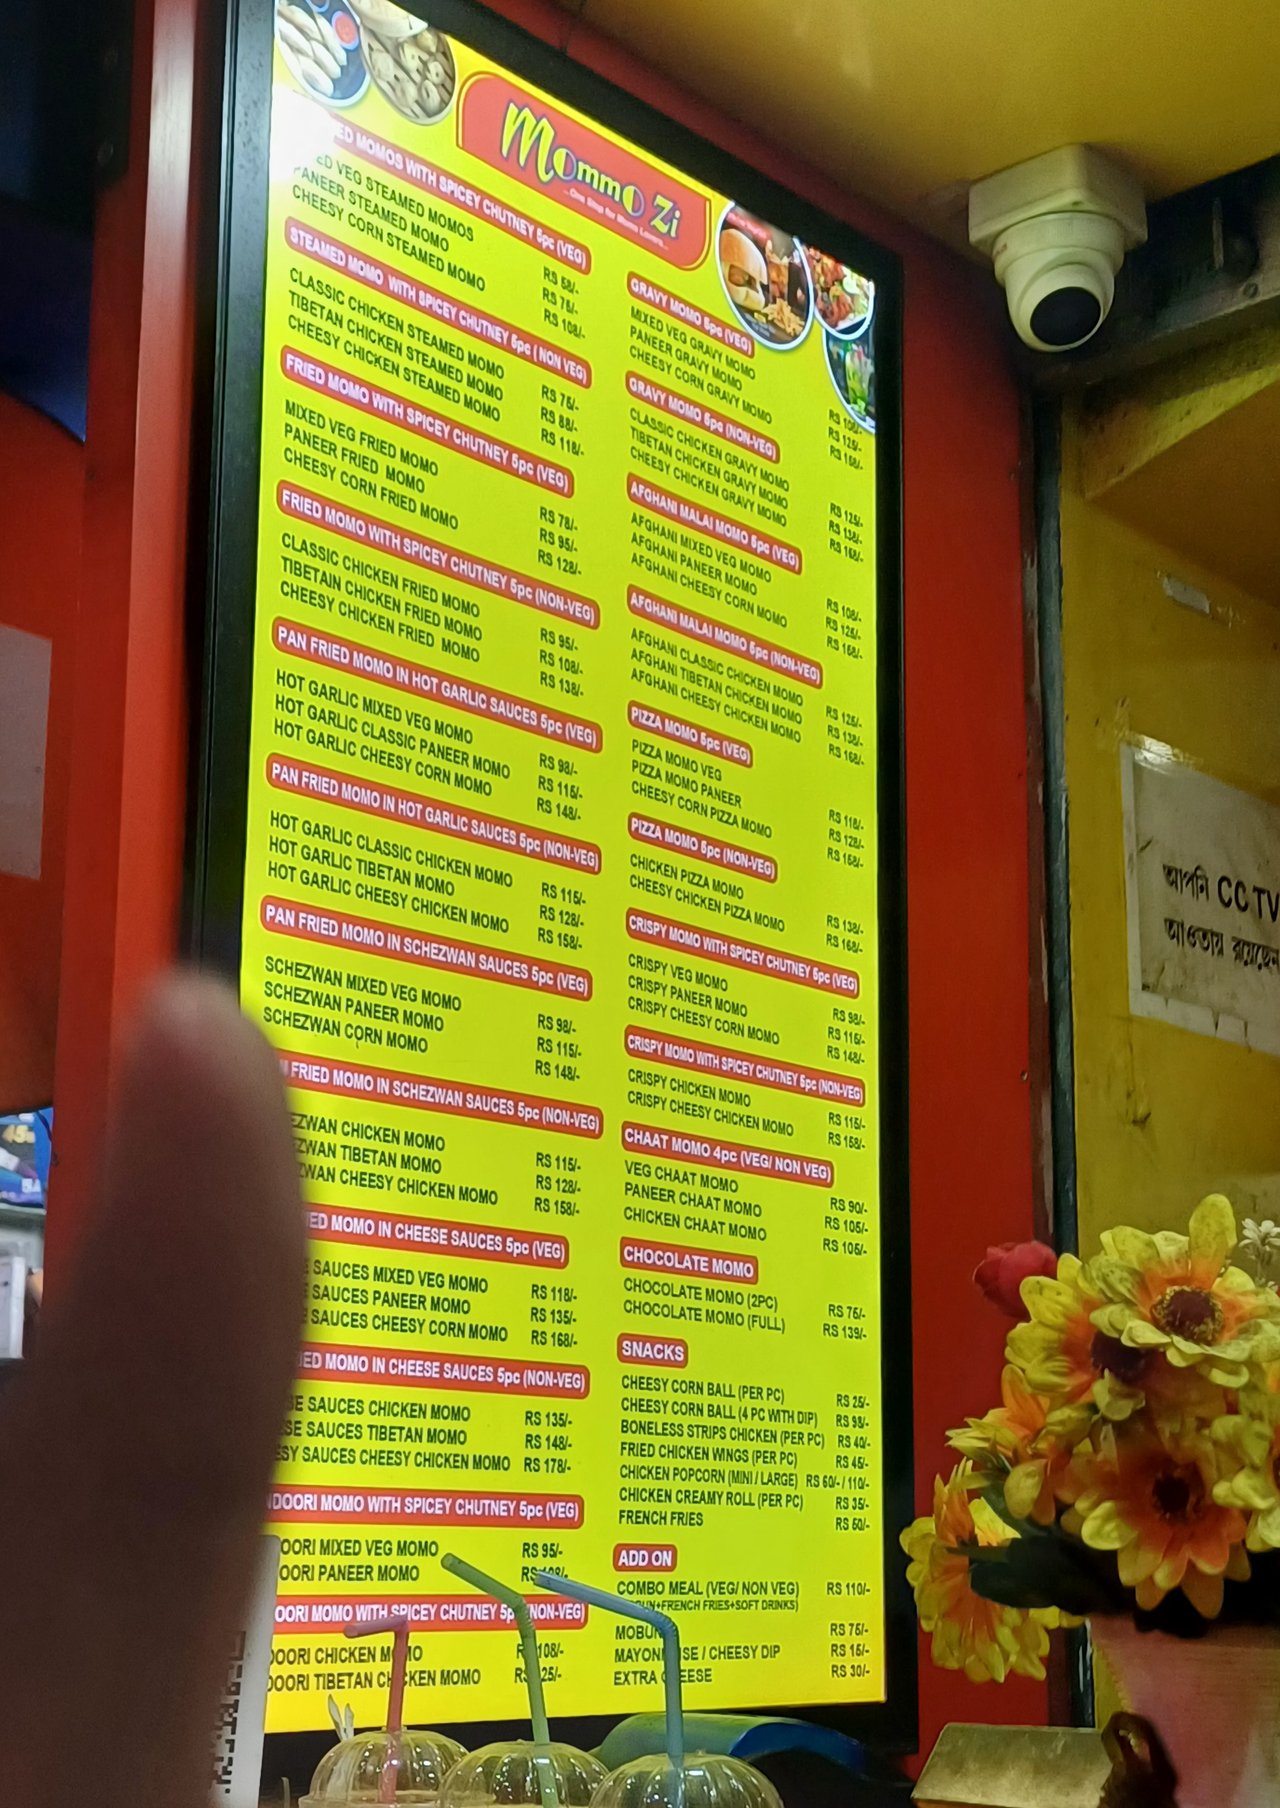 Mommo Zi
...One Stop for Momo Lovers...
MOMOS WITH SPICEY CHUTNEY 5pc (VEG)
VEG STEAMED MOMOS RS 58/-
PANEER STEAMED MOMO RS 76/-
CHEESY CORN STEAMED MOMO RS 108/-
STEAMED MOMO WITH SPICEY CHUTNEY 5pc ( NON VEG)
CLASSIC CHICKEN STEAMED MOMO RS 76/-
TIBETAN CHICKEN STEAMED MOMO RS 88/-
CHEESY CHICKEN STEAMED MOMO RS 118/-
FRIED MOMO WITH SPICEY CHUTNEY 5pc (VEG)
MIXED VEG FRIED MOMO RS 78/-
PANEER FRIED MOMO RS 95/-
CHEESY CORN FRIED MOMO RS 128/-
FRIED MOMO WITH SPICEY CHUTNEY 5pc (NON-VEG)
CLASSIC CHICKEN FRIED MOMO RS 95/-
TIBETAIN CHICKEN FRIED MOMO RS 108/-
CHEESY CHICKEN FRIED MOMO RS 138/-
PAN FRIED MOMO IN HOT GARLIC SAUCES 5pc (VEG)
HOT GARLIC MIXED VEG MOMO RS 98/-
HOT GARLIC CLASSIC PANEER MOMO RS 115/-
HOT GARLIC CHEESY CORN MOMO RS 148/-
PAN FRIED MOMO IN HOT GARLIC SAUCES 5pc (NON-VEG)
HOT GARLIC CLASSIC CHICKEN MOMO RS 115/-
HOT GARLIC TIBETAN MOMO RS 128/-
HOT GARLIC CHEESY CHICKEN MOMO RS 158/-
PAN FRIED MOMO IN SCHEZWAN SAUCES 5pc (VEG)
SCHEZWAN MIXED VEG MOMO RS 98/-
SCHEZWAN PANEER MOMO RS 115/-
SCHEZWAN CORN MOMO RS 148/-
FRIED MOMO IN SCHEZWAN SAUCES 5pc (NON-VEG)
EZWAN CHICKEN MOMO RS 115/-
ZWAN TIBETAN MOMO RS 128/-
WAN CHEESY CHICKEN MOMO RS 158/-
IED MOMO IN CHEESE SAUCES 5pc (VEG)
SAUCES MIXED VEG MOMO RS 118/-
SAUCES PANEER MOMO RS 135/-
SAUCES CHEESY CORN MOMO RS 168/-
IED MOMO IN CHEESE SAUCES 5pc (NON-VEG)
SE SAUCES CHICKEN MOMO RS 135/-
SE SAUCES TIBETAN MOMO RS 148/-
SY SAUCES CHEESY CHICKEN MOMO RS 178/-
NDOORI MOMO WITH SPICEY CHUTNEY 5pc (VEG)
OORI MIXED VEG MOMO RS 95/-
OORI PANEER MOMO
OORI MOMO WITH SPICEY CHUTNEY (NON-VEG)
OORI CHICKEN MOMO 108/-
OORI TIBETAN CHICKEN MOMO 25/-
GRAVY MOMO 5pc (VEG)
MIXED VEG GRAVY MOMO RS 108/-
PANEER GRAVY MOMO RS 125/-
CHEESY CORN GRAVY MOMO RS 158/-
GRAVY MOMO 5pc (NON-VEG)
CLASSIC CHICKEN GRAVY MOMO RS 125/-
TIBETAN CHICKEN GRAVY MOMO RS 138/-
CHEESY CHICKEN GRAVY MOMO RS 168/-
AFGHANI MALAI MOMO 5pc (VEG)
AFGHANI MIXED VEG MOMO RS 108/-
AFGHANI PANEER MOMO RS 125/-
AFGHANI CHEESY CORN MOMO RS 158/-
AFGHANI MALAI MOMO 5pc (NON-VEG)
AFGHANI CLASSIC CHICKEN MOMO RS 125/-
AFGHANI TIBETAN CHICKEN MOMO RS 138/-
AFGHANI CHEESY CHICKEN MOMO RS 168/-
PIZZA MOMO 5pc (VEG)
PIZZA MOMO VEG RS 118/-
PIZZA MOMO PANEER RS 128/-
CHEESY CORN PIZZA MOMO RS 158/-
PIZZA MOMO 5pc (NON-VEG)
CHICKEN PIZZA MOMO RS 138/-
CHEESY CHICKEN PIZZA MOMO RS 168/-
CRISPY MOMO WITH SPICEY CHUTNEY 5pc (VEG)
CRISPY VEG MOMO RS 98/-
CRISPY PANEER MOMO RS 115/-
CRISPY CHEESY CORN MOMO RS 148/-
CRISPY MOMO WITH SPICEY CHUTNEY 5pc (NON-VEG)
CRISPY CHICKEN MOMO RS 115/-
CRISPY CHEESY CHICKEN MOMO RS 158/-
CHAAT MOMO 4pc (VEG/ NON VEG)
VEG CHAAT MOMO RS 90/-
PANEER CHAAT MOMO RS 105/-
CHICKEN CHAAT MOMO RS 105/-
CHOCOLATE MOMO
CHOCOLATE MOMO (2PC) RS 75/-
CHOCOLATE MOMO (FULL) RS 139/-
SNACKS
CHEESY CORN BALL (PER PC) RS 25/-
CHEESY CORN BALL (4 PC WITH DIP) RS 98/-
BONELESS STRIPS CHICKEN (PER PC) RS 40/-
FRIED CHICKEN WINGS (PER PC) RS 45/-
CHICKEN POPCORN (MINI / LARGE) RS 60/- / 110/-
CHICKEN CREAMY ROLL (PER PC) RS 35/-
FRENCH FRIES RS 60/-
ADD ON
COMBO MEAL (VEG/ NON VEG) RS 110/-
+FRENCH FRIES+SOFT DRINKS)
RS 75/-
SE / CHEESY DIP RS 15/-
EXTRA RS 30/-
আপনি CC TV
আওতায় রয়েছেন